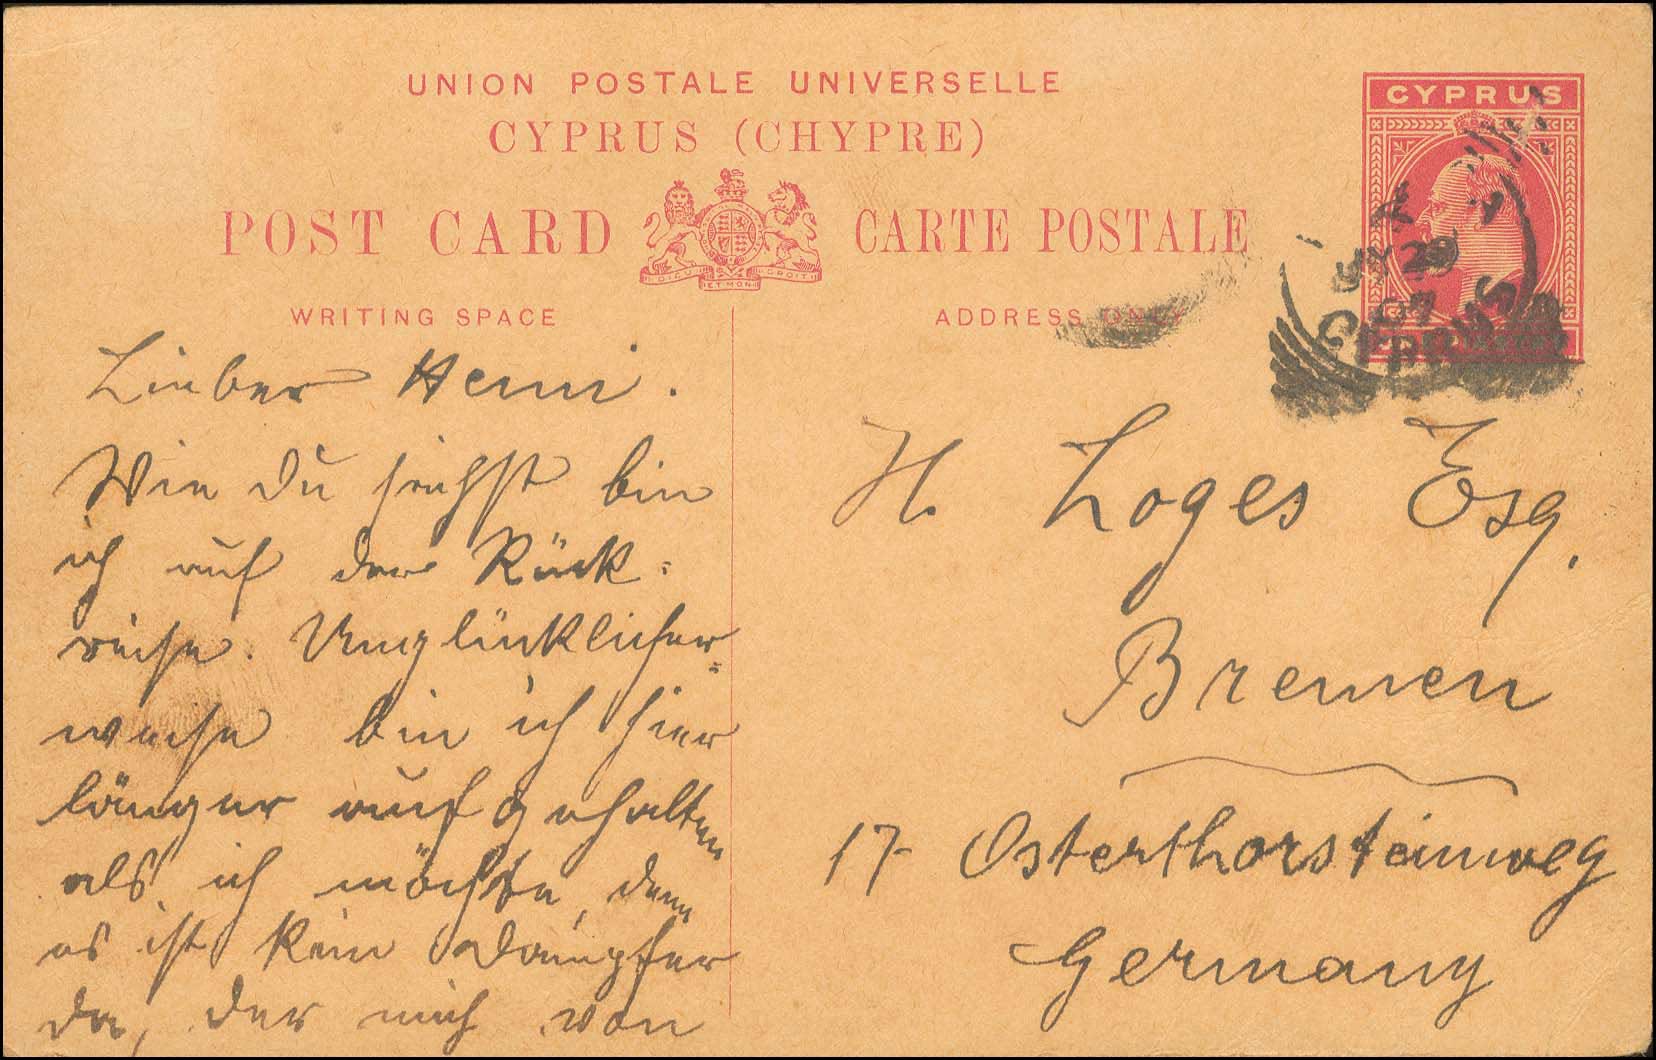 UNION POSTALE UNIVERSELLE
CYPRUS (CHYPRE)
POST CARD CARTE POSTALE
DIEU ET MON DROIT
WRITING SPACE
ADDRESS ONLY
CYPRUS
JY 29
07
CYPRUS
Lieber Henni.
Wie Du siehst bin
ich auf der Rück-
reise. Unglücklicher-
weise bin ich hier
länger aufgehalten
als ich möchte, denn
es ist kein Dampfer
da, der mich von
H. Loges Esq.
Bremen
17 Osterthorsteinweg
Germany